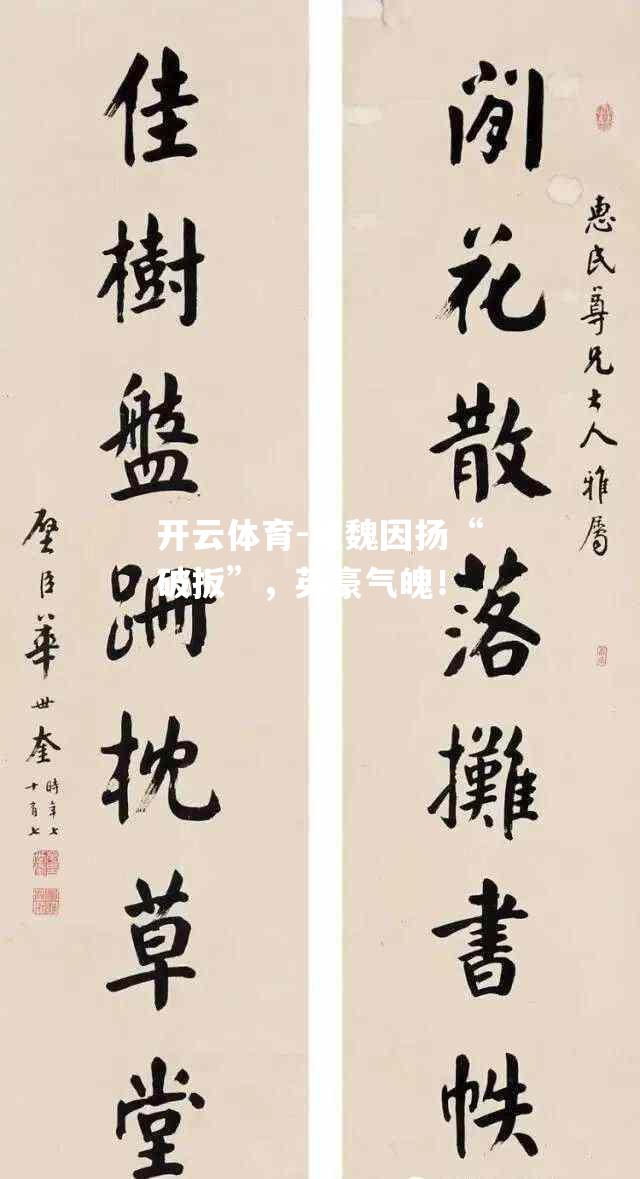 惠民尊兄大人雅屬
閒花散落攤書帙
佳樹盤跚枕草堂
璧臣華世奎
時年七
十有七
开云体育-魏因扬“
破扳”，英豪气魄！